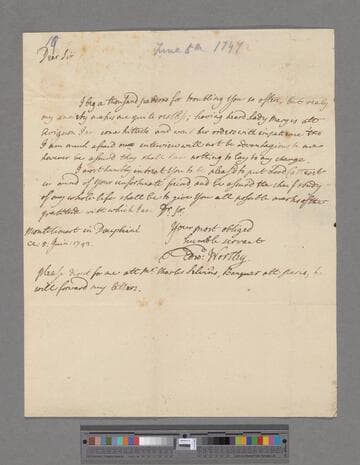 June 8th 1742
Dear Sir
I beg a thousand pardons for troubling you so often, but really
my anxiety makes me quite restless; having heard Lady Mary is att
Avignon I am come hither and wait her orders with impatience tho
I am much afraid our interview will not be advantageous to me
however be assured they shall have nothing to lay to my charge.
I must humbly intreat you to be pleased to put Lord
in mind of your unfortunate friend, and be assured the chief study
of my whole life shall be to give you all possible marks of the
gratitude with which I am Dr. Sr.
Your most obliged
humble servant
Edwd. Wortley
Montelimart in Dauphiné
ce 8 Juin 1742.
please direct for me att Mr. Charles Selwins, Banquer att paris, he
will forward my letters.